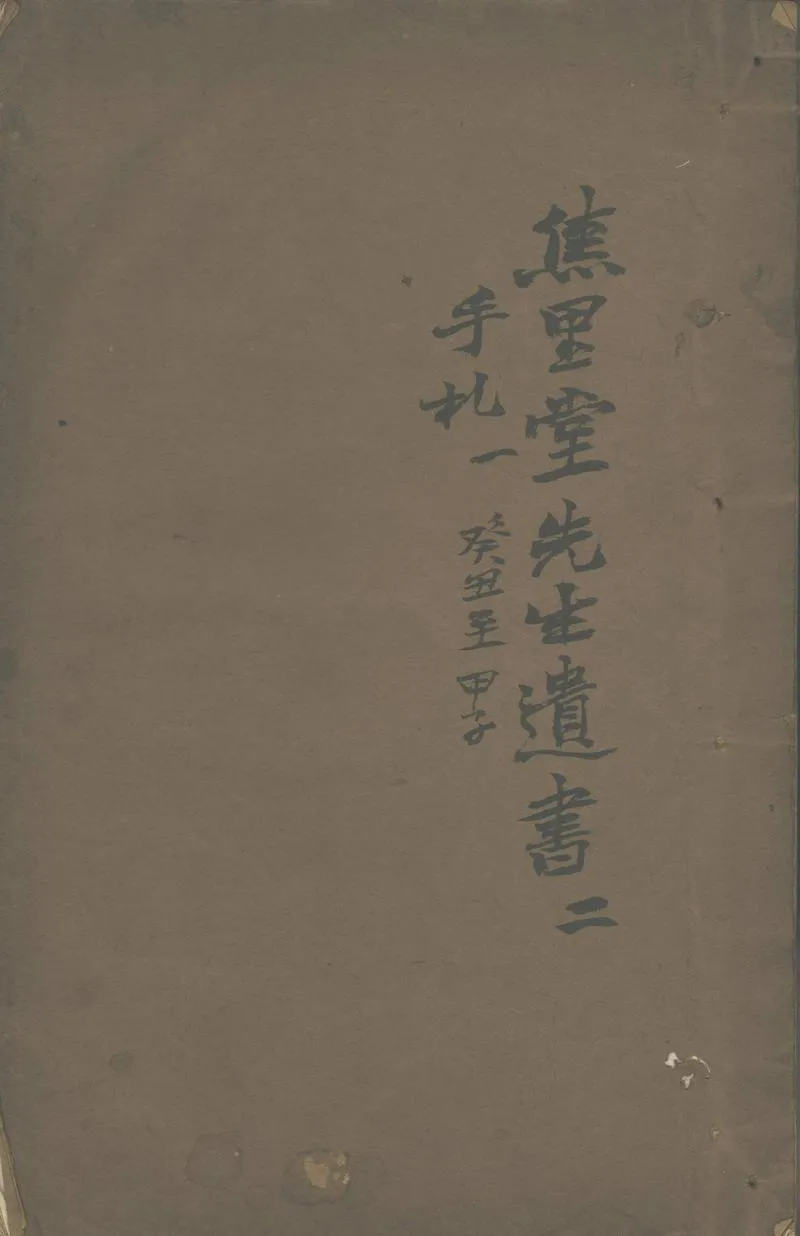 焦里堂先生遺書二
手札一 癸丑至甲子